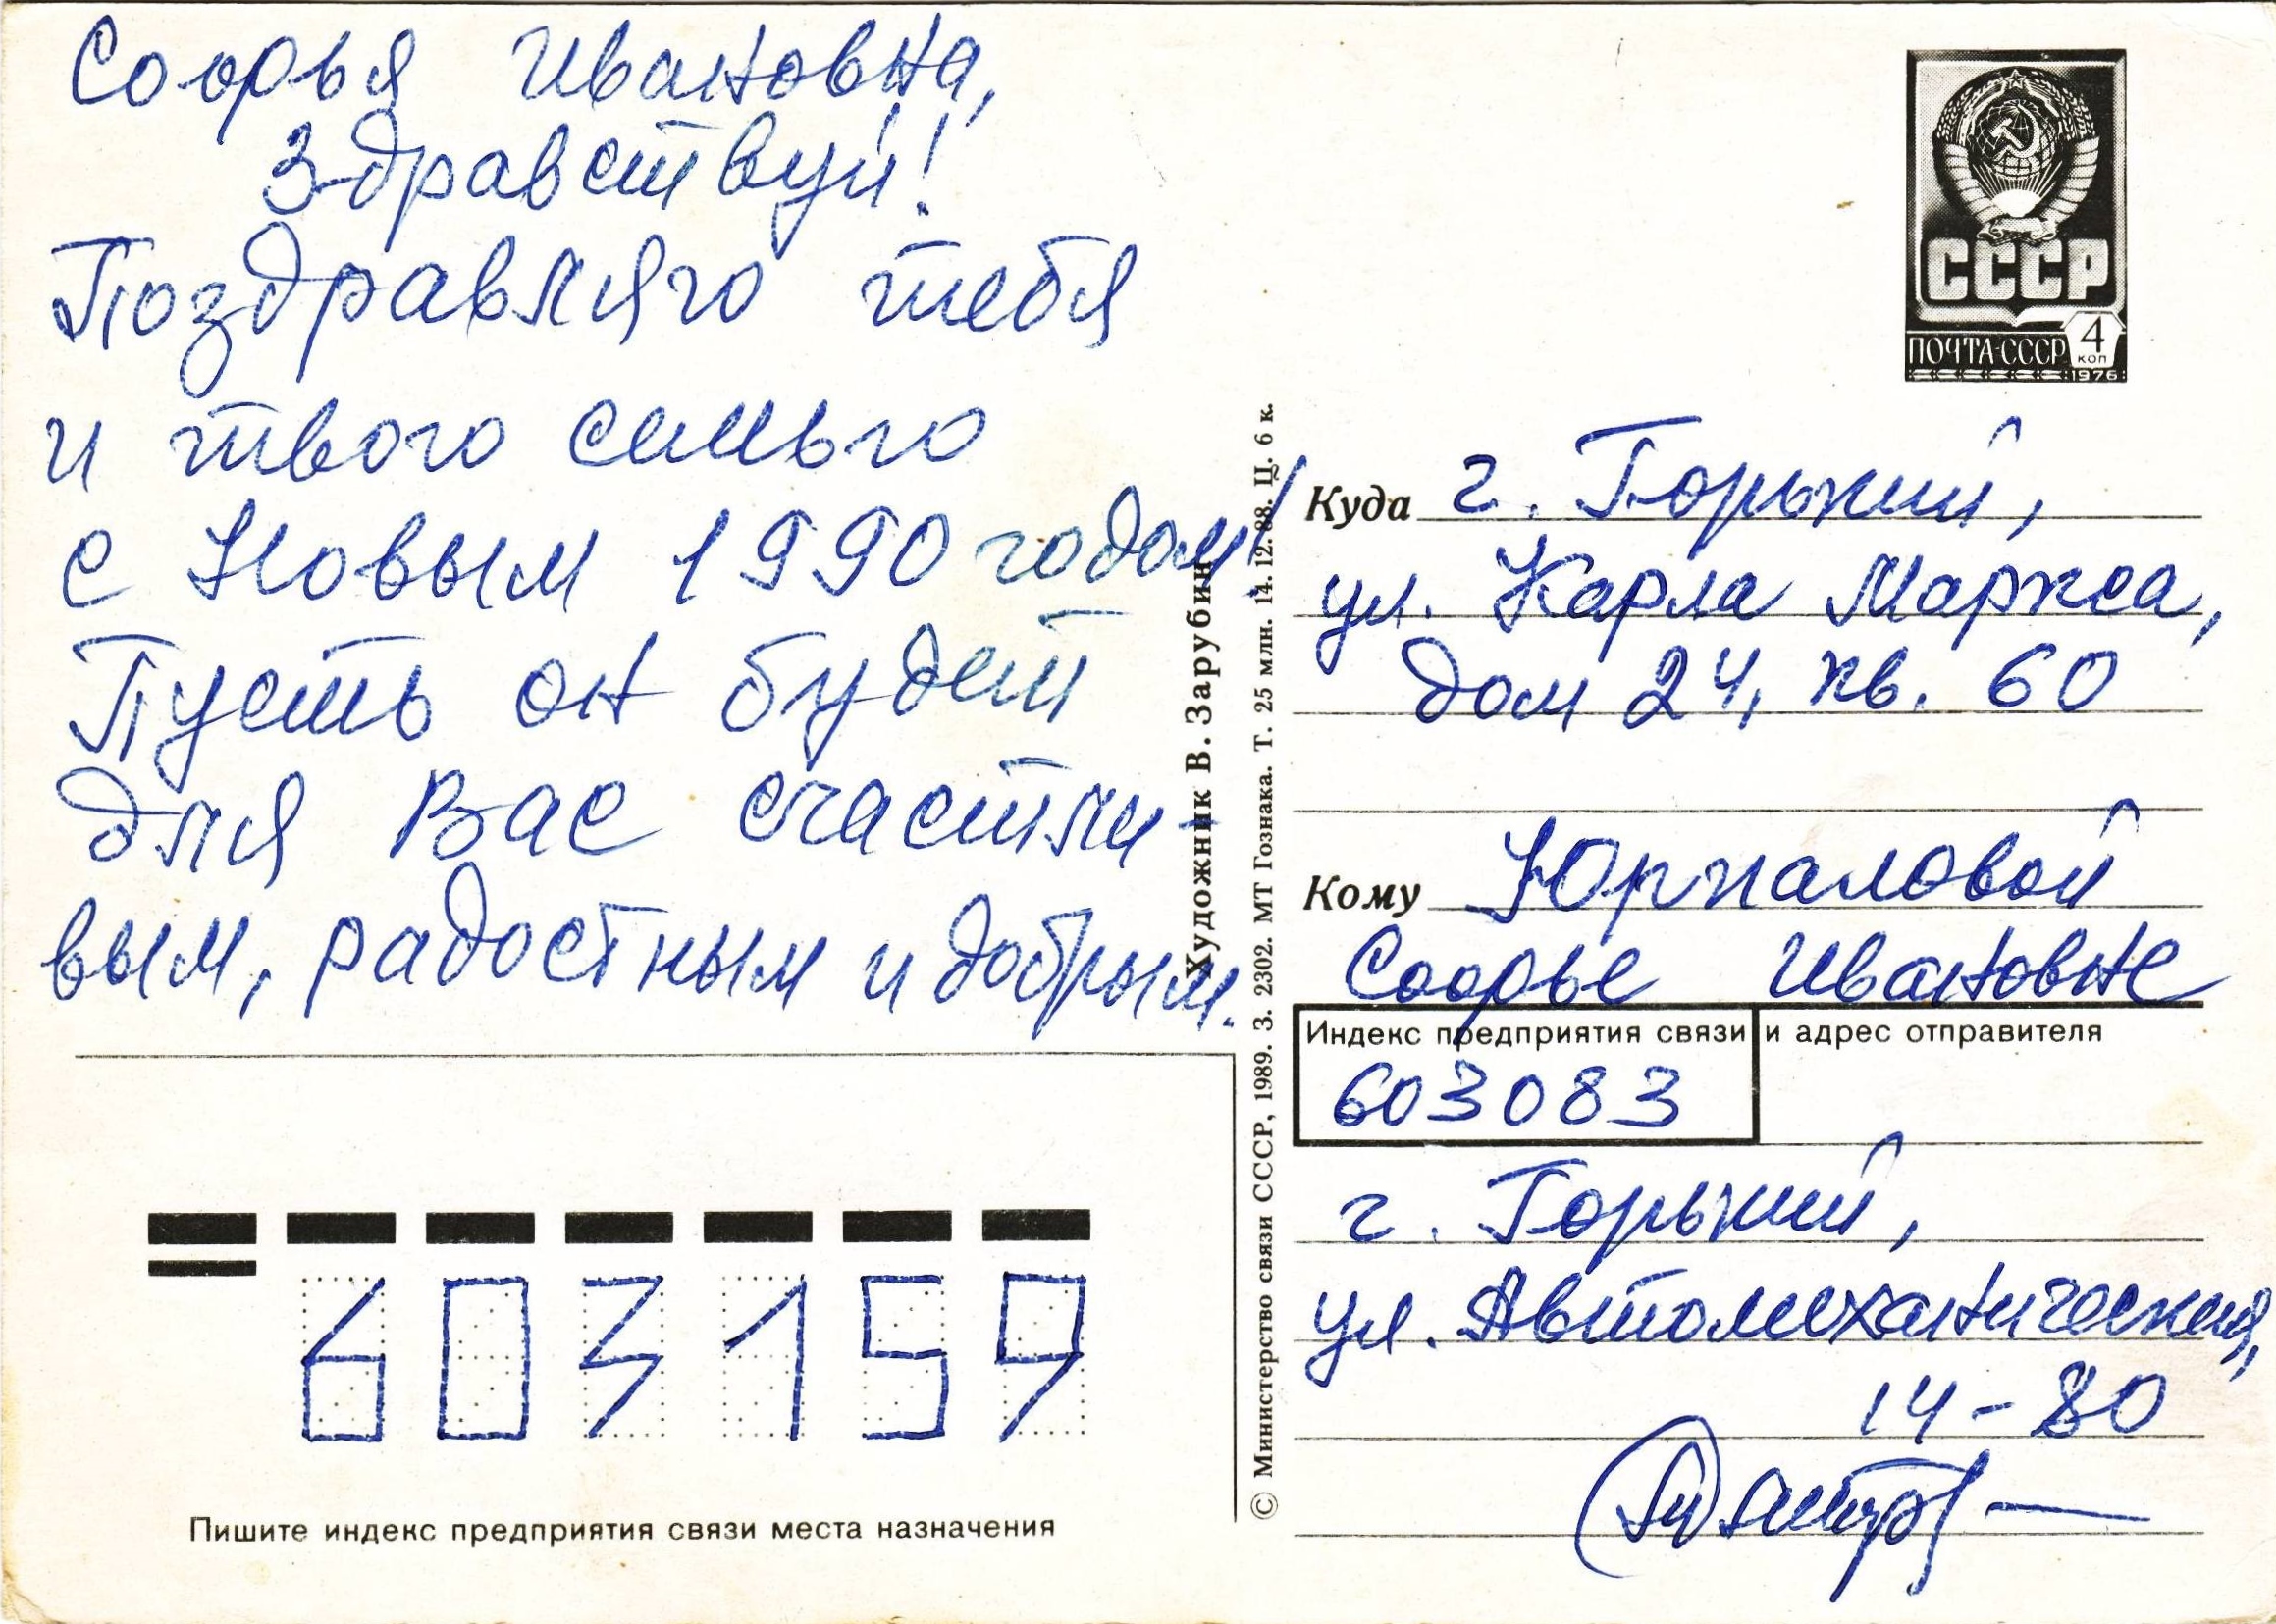 Софья Ивановна,
здравствуй!
Поздравляю тебя
и твою семью
с Новым 1990 годом!
Пусть он будет
для Вас счастли-
вым, радостным и добрым.
Пишите индекс предприятия связи места назначения
603159
Художник В. Зарубин
© Министерство связи СССР, 1989. З. 2302. МТ Гознака. Т. 25 млн. 14.12.88. Ц. 6 к.
СССР
ПОЧТА·СССР 4 коп
1976
Куда г. Горький,
ул. Карла Маркса,
дом 24, кв. 60
Кому Юрпаловой
Софье Ивановне
Индекс предприятия связи и адрес отправителя
603083
г. Горький,
ул. Автомеханическая,
14-80